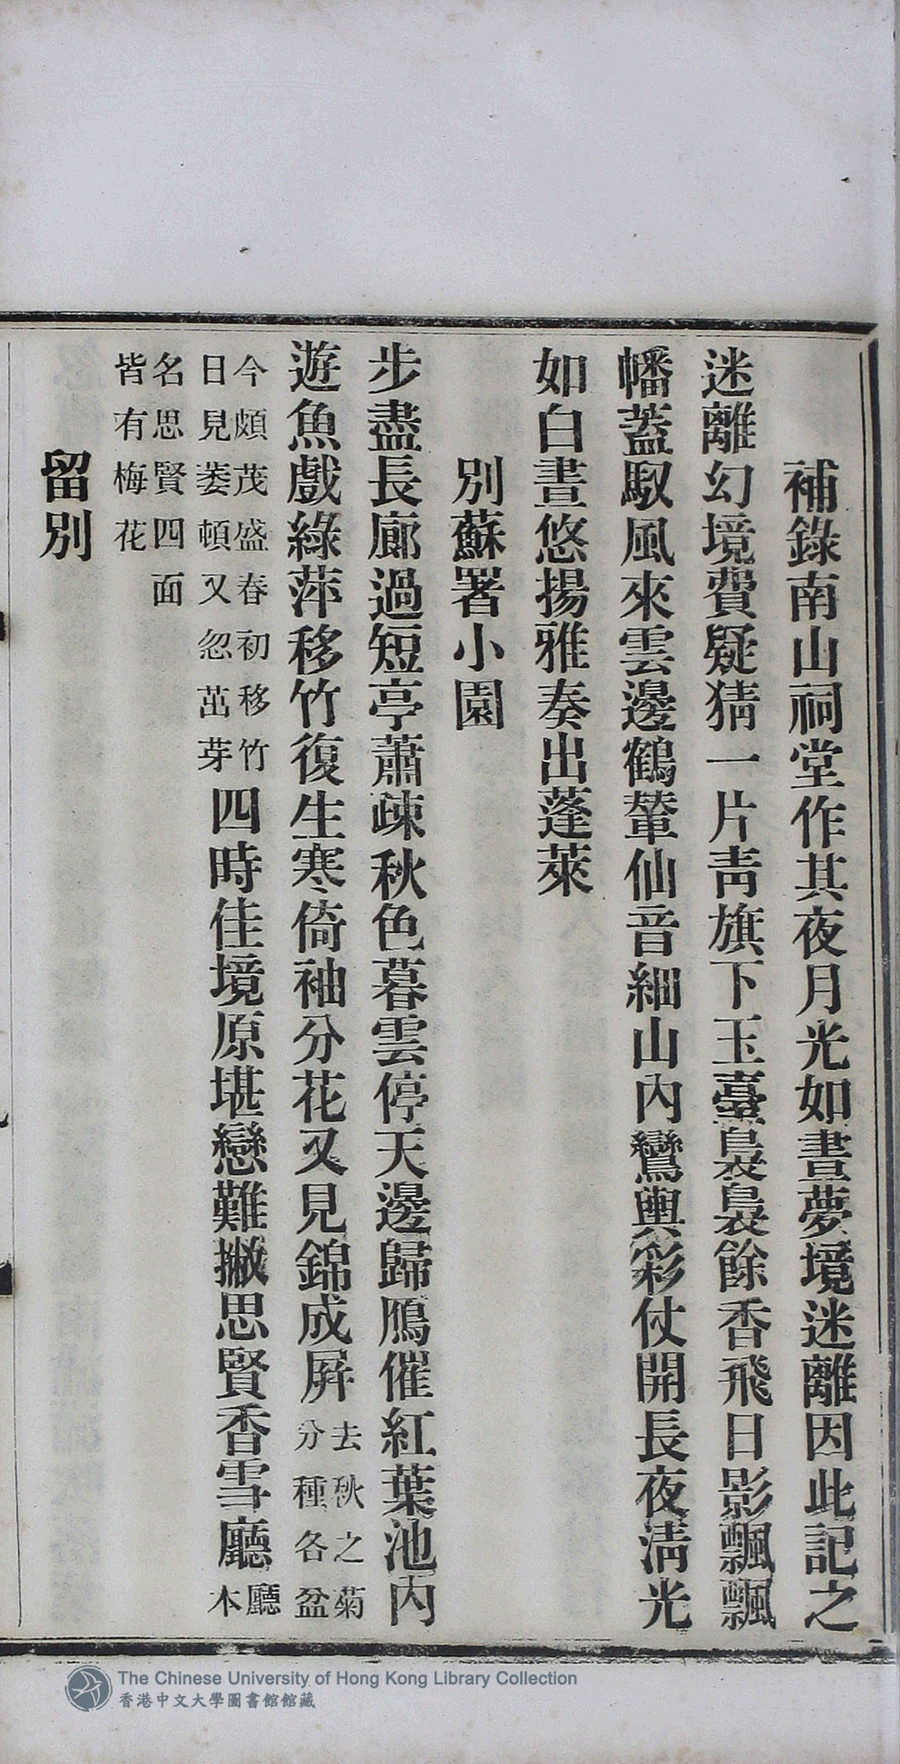 補錄南山祠堂作其夜月光如晝夢境迷離因此記之
迷離幻境費疑猜一片靑旗下玉臺裊裊餘香飛日影飄飄
幡蓋馭風來雲邊鶴輦仙音細山內鸞輿彩仗開長夜淸光
如白晝悠揚雅奏出蓬萊
別蘇署小園
步盡長廊過短亭蕭疎秋色暮雲停天邊歸鴈催紅葉池內
遊魚戲綠萍移竹復生寒倚袖分花又見錦成屏去秋之菊分種各盆
今頗茂盛春初移竹日見萎頓又忽茁芽四時佳境原堪戀難撇思賢香雪廳廳本
名思賢四面皆有梅花
留別
The Chinese University of Hong Kong Library Collection
香港中文大學圖書館館藏